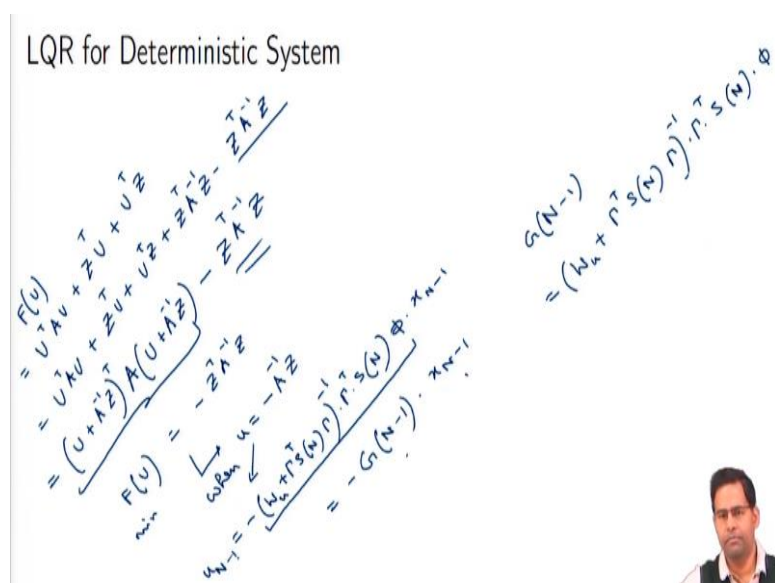 LQR for Deterministic System
F(U)
= UᵀAU + ZᵀU + UᵀZ
= UᵀAU + ZᵀU + UᵀZ + ZᵀA⁻¹Z - ZᵀA⁻¹Z
= (U + A⁻¹Z)ᵀ A (U + A⁻¹Z) - ZᵀA⁻¹Z
F(U) = - ZᵀA⁻¹Z
min
when u = -A⁻¹Z
u_{N-1} = -(W_u + Γᵀ S(N) Γ)⁻¹ · Γᵀ · S(N) Φ · x_{N-1}
= - G(N-1) · x_{N-1}
G(N-1)
= (W_u + Γᵀ S(N) Γ)⁻¹ · Γᵀ · S(N) · Φ